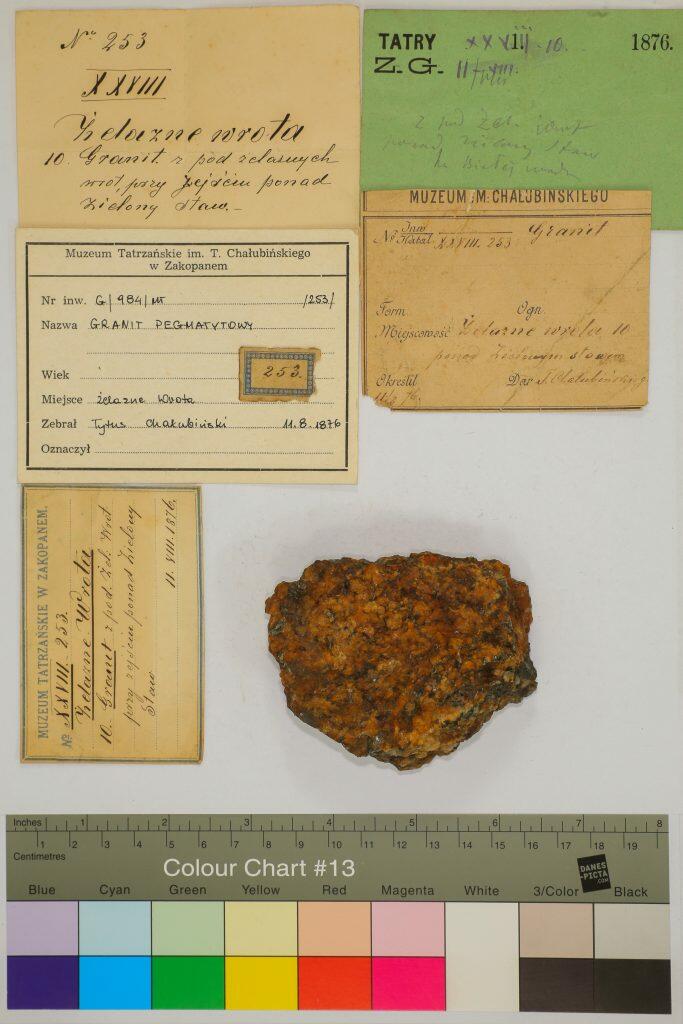 No 253
XXVIII
Żelazne wrota
10. Granit z pod żelaznych
wrót, przy zejściu ponad
Zielony Staw.
TATRY XXVIII. 10. 1876.
Z. G. 11 VIII.
z pod Żel.
ponad Zielony Staw
MUZEUM M. CHAŁUBIŃSKIEGO
No Inw. Katal. XXVIII. 253 Granit
Form. Ogn.
Miejscowość Żelazne wrota 10
ponad Zielonym stawem
Określił Dar T. Chałubińskiego
11/8 76.
Muzeum Tatrzańskie im. T. Chałubińskiego
w Zakopanem
Nr inw. G/984/MT /253/
Nazwa GRANIT PEGMATYTOWY
Wiek
253.
Miejsce Żelazne Wrota
Zebrał Tytus Chałubiński 11.8.1876
Oznaczył
MUZEUM TATRZAŃSKIE W ZAKOPANEM.
No XXVIII. 253.
Żelazne Wrota
10. Granit z pod Żel. Wrót
przy zejściu ponad Zielony
Staw
11. VIII. 1876.
Inches 1 2 3 4 5 6 7 8
Centimetres 1 2 3 4 5 6 7 8 9 10 11 12 13 14 15 16 17 18 19
Colour Chart #13
DANES
-PICTA
.COM
Blue Cyan Green Yellow Red Magenta White 3/Color Black